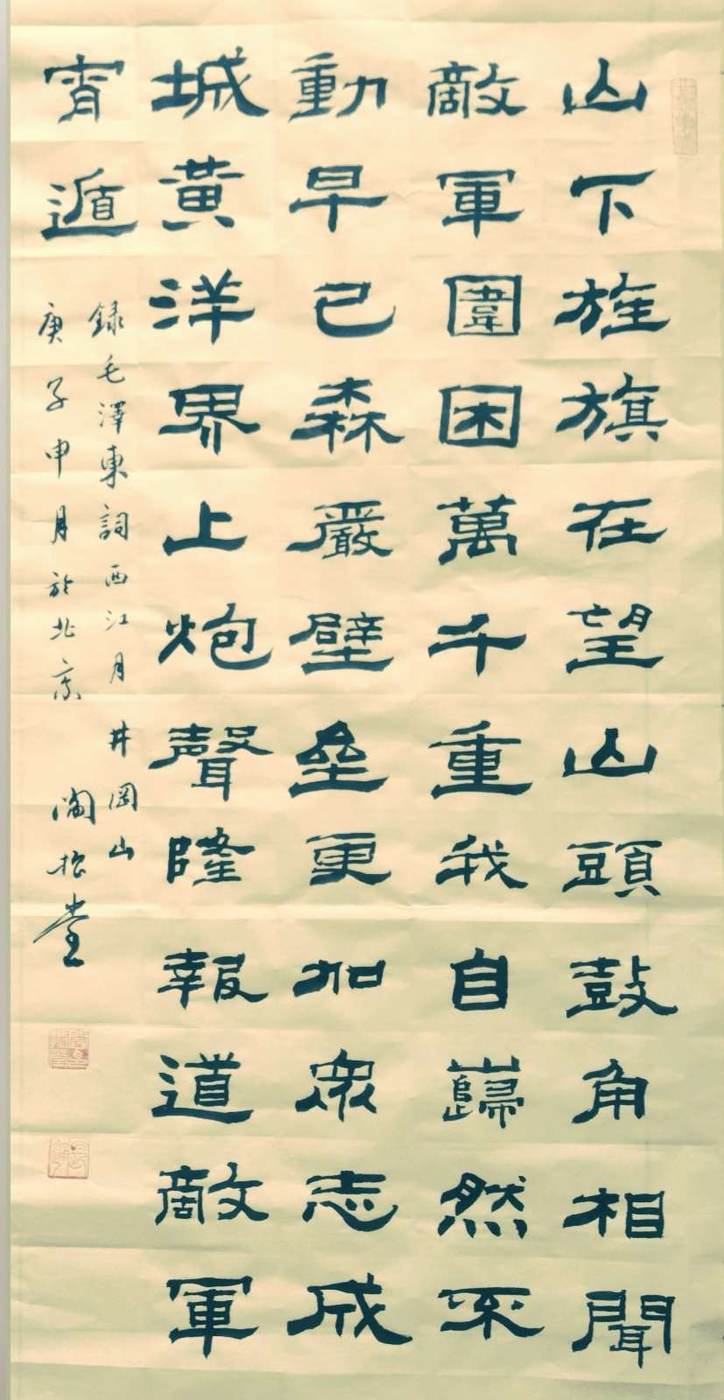 山下旌旗在望山頭鼓角相聞
敵軍圍困萬千重我自巋然不
動早已森嚴壁壘更加眾志成
城黃洋界上炮聲隆報道敵軍
宵遁
錄毛澤東詞西江月井岡山
庚子申月於北京
松堂